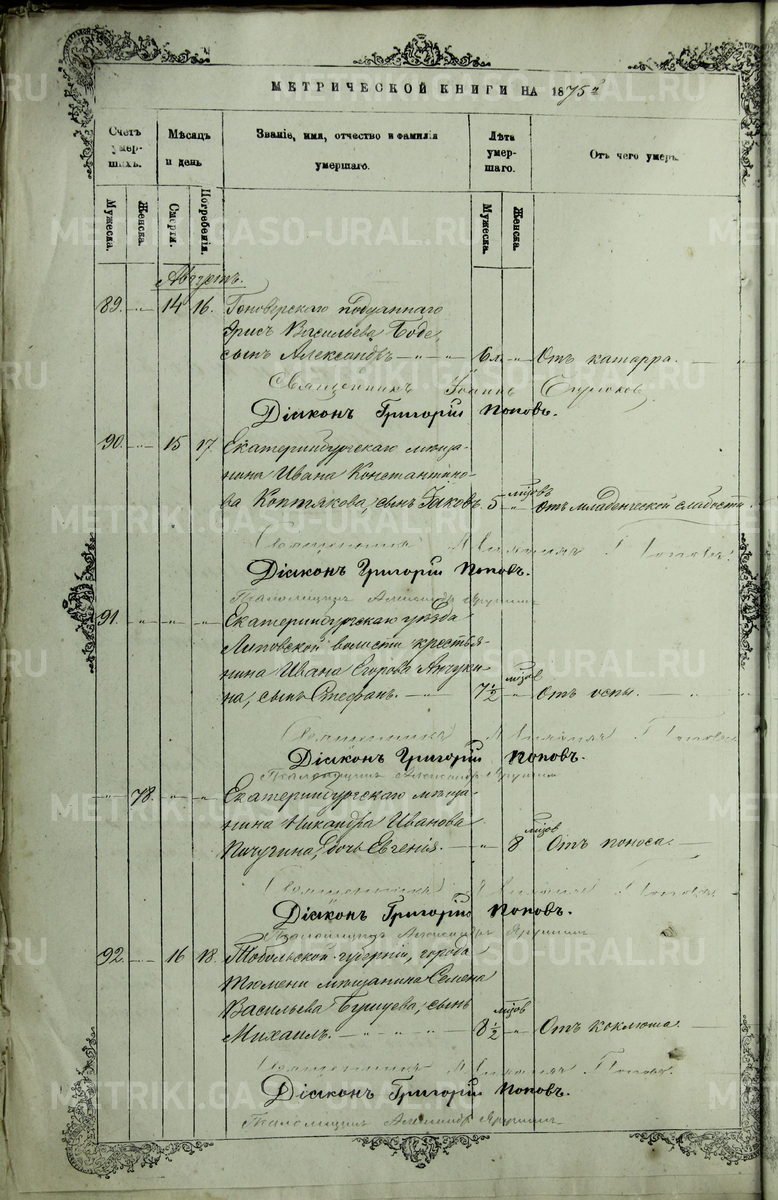 МЕТРИЧЕСКОЙ КНИГИ НА 1875й
Счетъ умер-шихъ.
Мѣсяцъ и день
Званіе, имя, отчество и фамилія умершаго.
Лѣта умер-шаго.
Отъ чего умеръ.
Мужеска.
Женска.
Смерти.
Погребенія.
Мужеска.
Женска.
Августъ.
89. " 14 16. Гановерскаго подданнаго
Васильева Боде,
сынъ Александръ " 6 л. " Отъ катарра.
Священникъ Іоаннъ
Діаконъ Григорій Поповъ.
90. " 15 17 Екатеринбургскаго мѣща-
нина Ивана Константино-
ва Коптякова, сынъ Іаковъ. 5 мцовъ " Отъ младенческой слабости.
Священникъ Поповъ.
Діаконъ Григорій Поповъ.
Псаломщикъ Александръ
91. " " " Екатеринбургскаго уѣзда
Липовской волости крестья-
нина Ивана Егорова
на, сынъ Стефанъ. 7½ мцов " Отъ оспы.
Священникъ Поповъ
Діаконъ Григорій Поповъ.
Псаломщикъ Александръ
" 78. " " Екатеринбургскаго мѣща-
нина Никандра Иванова
Пичугина, дочь Евгенія. " 8 мцов Отъ поноса.
Священникъ Поповъ
Діаконъ Григорій Поповъ.
Псаломщикъ Александръ
92. " 16 18. Тобольской губерніи, города
Тюмени мѣщанина Семена
Васильева сынъ
Михаилъ. 8½ мцов " Отъ коклюша.
Священникъ Поповъ.
Діаконъ Григорій Поповъ.
Псаломщикъ Александръ
METRIKI.GASO-URAL.RU